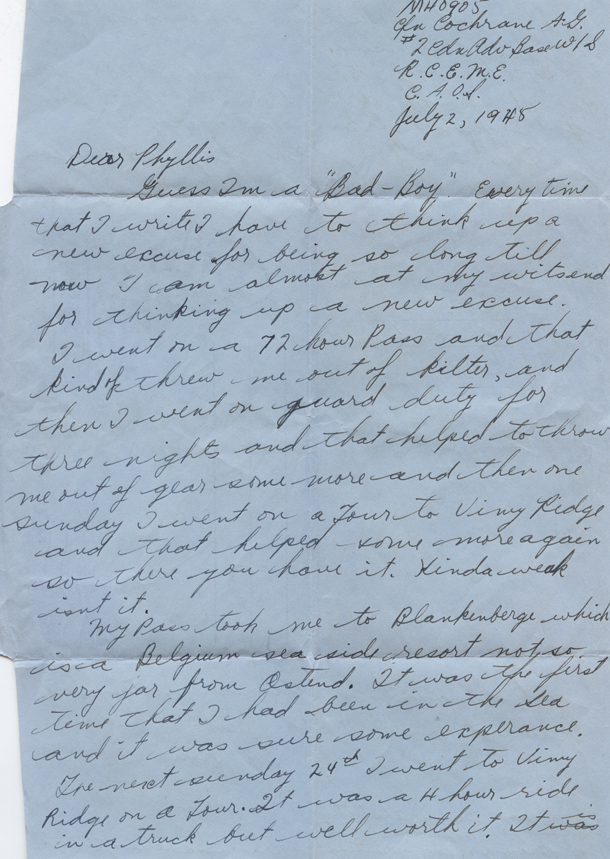 MH0905
Cfn Cochrane A.G.
#2 Cdn Adv Base W/S
R.C.E.M.E.
C.A.O.S.
July 2, 1945
Dear Phyllis
Guess I'm a "Bad-Boy". Every time
that I write I have to think up a
new excuse for being so long till
now I am almost at my witsend
for thinking up a new excuse.
I went on a 72 hour Pass and that
kind of threw me out of kilter, and
then I went on guard duty for
three nights and that helped to throw
me out of gear some more and then one
sunday I went on a Tour to Vimy Ridge
and that helped some more again
so there you have it. Kinda weak
isnt it.
My Pass took me to Blankenberge which
is a Belgium sea side resort not so
very far from Ostend. It was the first
time that I had been in the sea
and it was sure some experance.
The next sunday 24th I went to Vimy
Ridge on a Tour. It was a 4 hour ride
in a truck but well worth it. It is